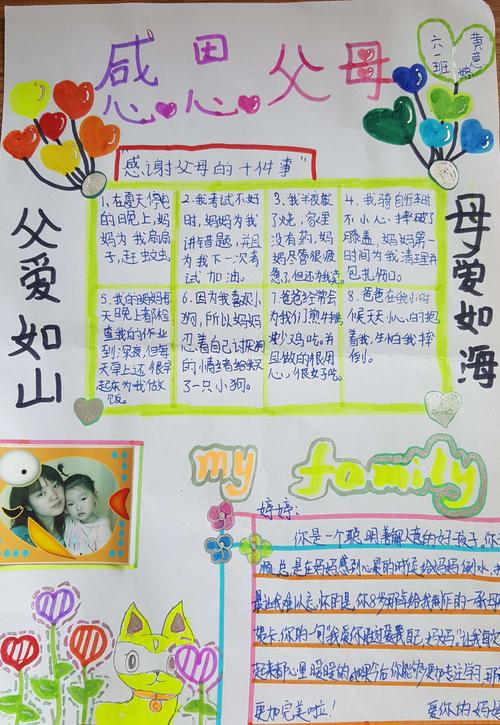 感恩父母
六一班
黄意婷
"感谢父母的十件事"
父爱如山
母爱如海
1、在夏天停电
的日晚上,妈
妈为我扇扇
子,赶蚊虫。
2、我考试不好
时,妈妈为我
讲错题,并且
为我下一次考
试加油。
3、我半夜发
了烧,家里
没有药,妈妈
尽管很疲
惫了但还为我
4、我骑自行车时
不小心摔破了
膝盖,妈妈第一
时间为我清理并
包扎伤口。
5、我的妈妈每
天晚上都陪检
查我的作业
到深夜,但每
天早上还很早
起床为我做
饭。
6、因为我喜欢小
狗,所以妈妈
忍着自己讨厌狗
的情绪给我买
了一只小狗。
7、爸爸经常会
为我们煎牛排
炒鸡吃,并
且做的很用
心,很好吃。
8、爸爸在我小时
候天天小心的抱
着我,生怕我摔
倒。
my family
婷婷:
你是一个聪明善解人意的好孩子。你
总是在妈妈感到心累的时候给妈妈倒水,
最让我难以忘怀的是,你8岁那年给我制作的一张母
你的一句"我爱你胜过爱我自己,妈妈。"让我
起来都心里暖暖的。如果今后你能够更加专注学习,那
更加完美啦!
爱你的妈妈